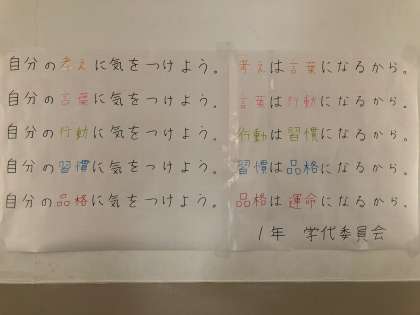 自分の考えに気をつけよう。考えは言葉になるから。
自分の言葉に気をつけよう。言葉は行動になるから。
自分の行動に気をつけよう。行動は習慣になるから。
自分の習慣に気をつけよう。習慣は品格になるから。
自分の品格に気をつけよう。品格は運命になるから。
1年 学代委員会